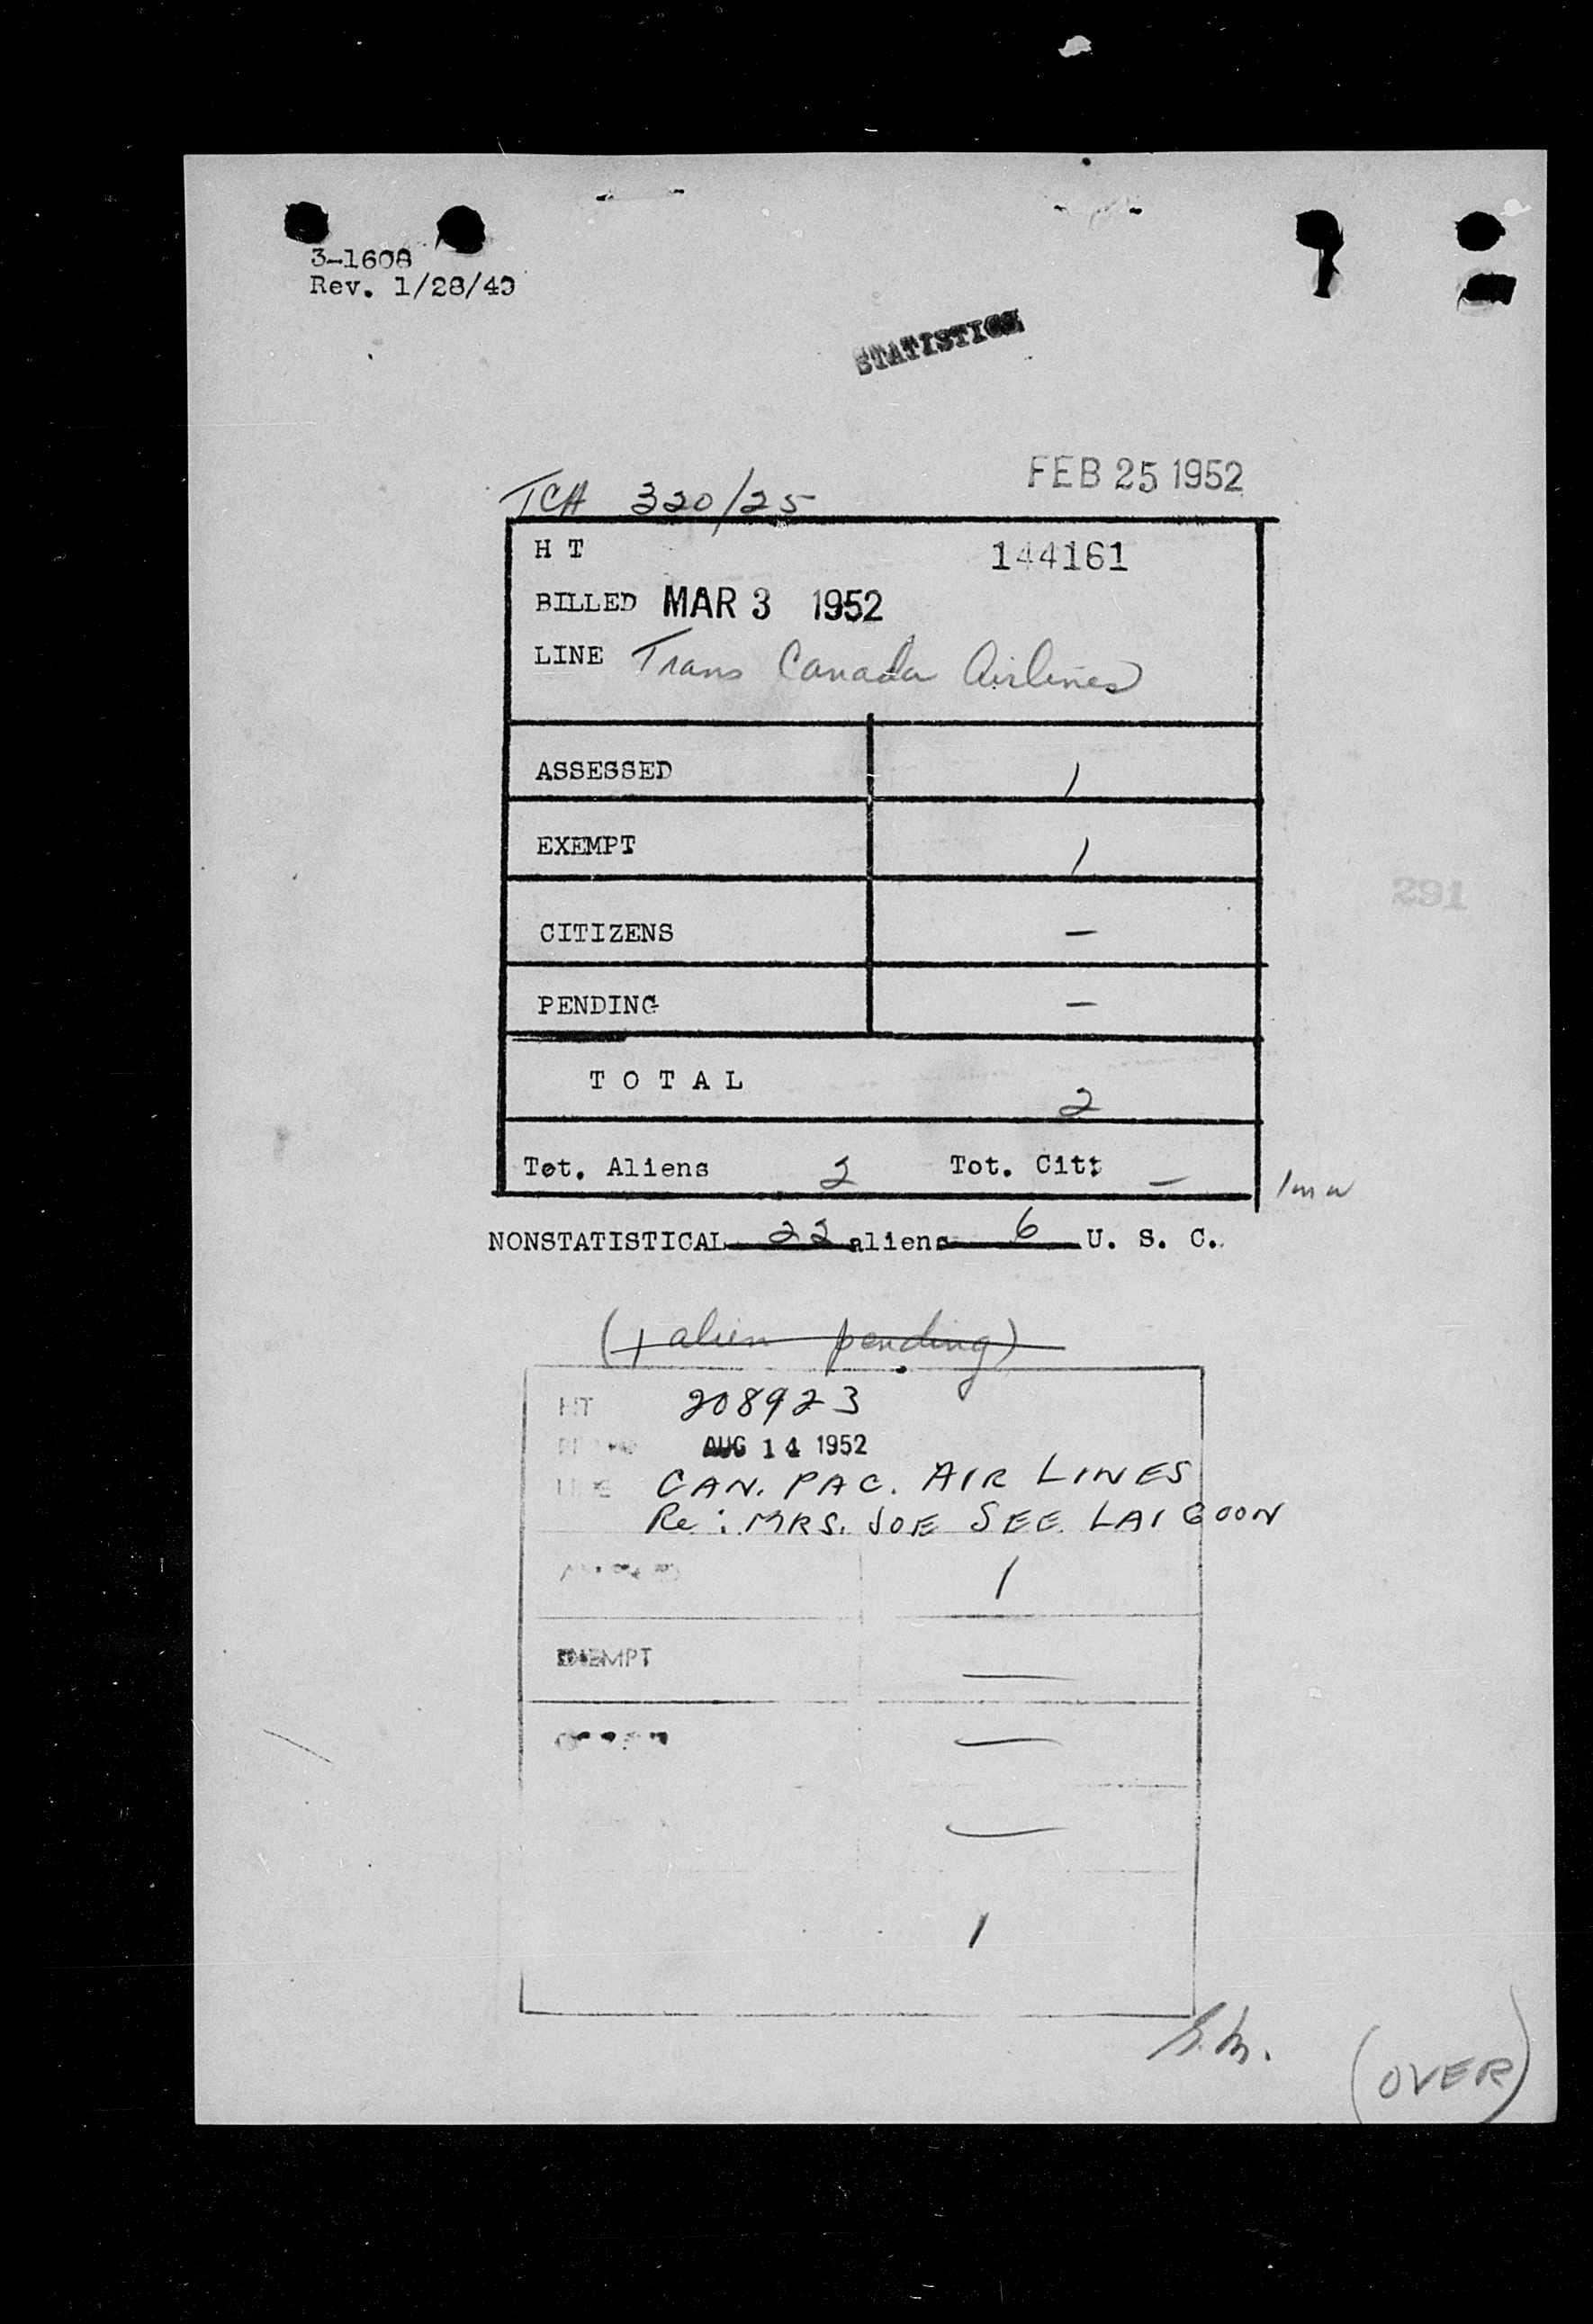 3-1608
Rev. 1/28/49
STATISTICS
FEB 25 1952
TCA 320/25
H T 144161
BILLED MAR 3 1952
LINE Trans Canada Airlines
ASSESSED 1
EXEMPT 1
291
CITIZENS —
PENDING —
T O T A L 2
Tot. Aliens 2 Tot. Cit: —
NONSTATISTICAL 22 aliens 6 U. S. C.
(1 alien pending)
HT 208923
AUG 14 1952
LINE CAN. PAC. AIR LINES
Re: MRS. JOE SEE LAI GOON
1
EXEMPT —
—
—
1
(OVER)